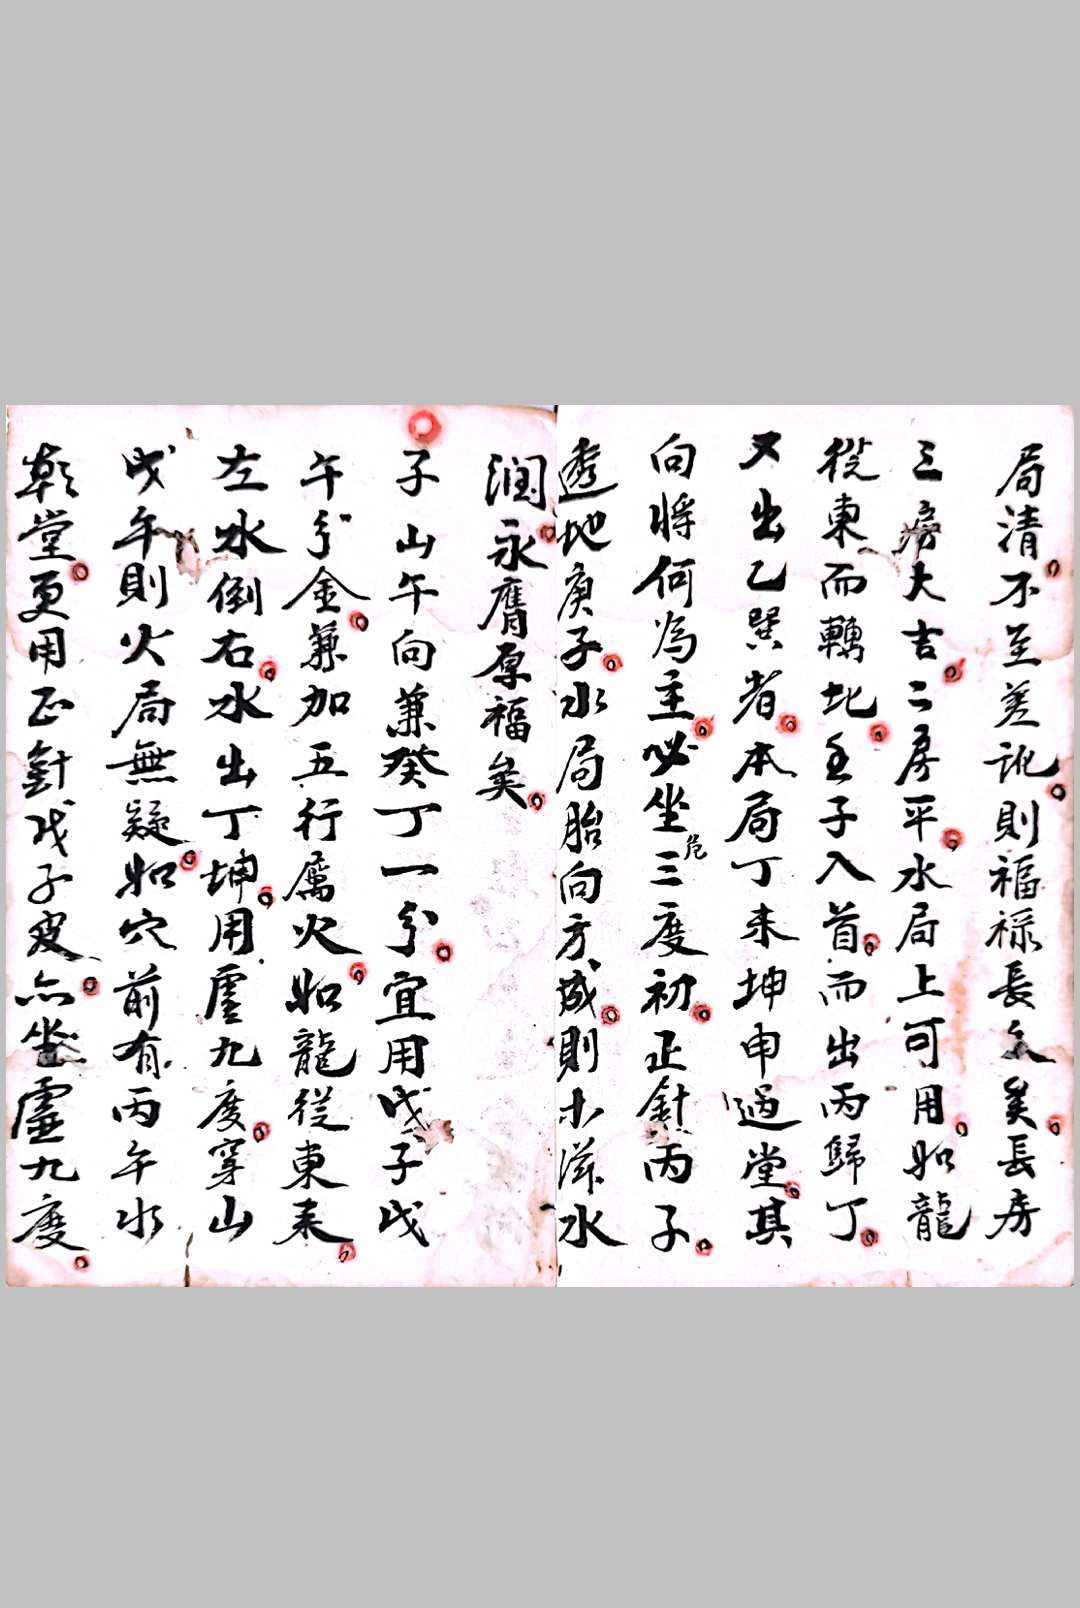 局清不至差訛則福祿長久矣長房
三房大吉二房平水局上可用如龍
從東而轉北壬子入首而出丙歸丁
又出乙巽者本局丁未坤申過堂其
向將何為主必坐危三度初正針丙子
透地庚子水局胎向方成則木滋水
潤永膺厚福矣
子山午向兼癸丁一分宜用戊子戊
午分金兼加五行屬火如龍從東來
左水倒右水出丁坤用虛九度穿山
戊午則火局無疑如穴前有丙午水
朝堂更用正針戊子發亦坐虛九度